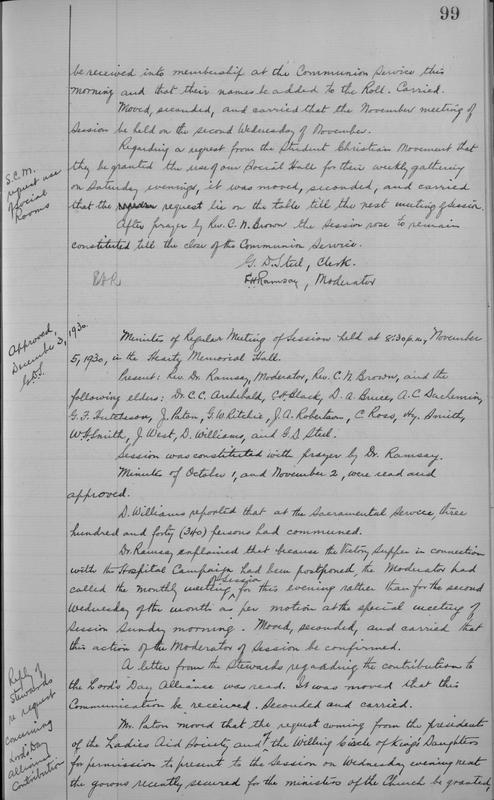 99
be received into membership at the Communion Service this
morning and that their names be added to the Roll. Carried.
Moved, seconded, and carried that the November meeting of
Session be held on the second Wednesday of November.
S.C.M.
request use
of Social
Rooms
Regarding a request from the Student Christian Movement that
they be granted the use of our Social Hall for their weekly gathering
on Saturday evenings, it was moved, seconded, and carried
that the request lie on the table till the next meeting of Session.
After prayer by Rev. C. N. Brown the Session rose to remain
constituted till the close of the Communion Service.
G. D. Steel, Clerk.
Ramsay, Moderator
Approved,
December 3, 1930.
G.D.S.
Minutes of Regular Meeting of Session held at 8:30 p.m., November
5, 1930, in the Hearty Memorial Hall.
Present: Rev. Dr. Ramsay, Moderator, Rev. C. N. Brown, and the
following elders: Dr. C. C. Archibald, C. H. Black, D. A. Bruce, A. C. Duchemin,
G. F. Hutcheson, J. Paton, G. W. Ritchie, J. A. Robertson, C. Ross, Hy. Smith,
W. H. Smith, J. West, D. Williams, and G. D. Steel.
Session was constituted with prayer by Dr. Ramsay.
Minutes of October 1, and November 2, were read and
approved.
D. Williams reported that at the Sacramental Service, three
hundred and forty (340) persons had communed.
Dr. Ramsay explained that because the Victory Supper in connection
with the Hospital Campaign had been postponed, the Moderator had
called the monthly meeting of Session for this evening rather than for the second
Wednesday of the month as per motion at the special meeting of
Session Sunday morning. Moved, seconded, and carried that
this action of the Moderator of Session be confirmed.
Reply of
Stewards
re request
concerning
Lord's Day
Alliance
Contribution
A letter from the Stewards regarding the contribution to
the Lord's Day Alliance was read. It was moved that this
Communication be received. Seconded and carried.
Mr. Paton moved that the request coming from the president
of the Ladies Aid Society and of the Willing Circle of King's Daughters
for permission to present to the Session on Wednesday evening next
the gowns recently secured for the ministers of the Church be granted,